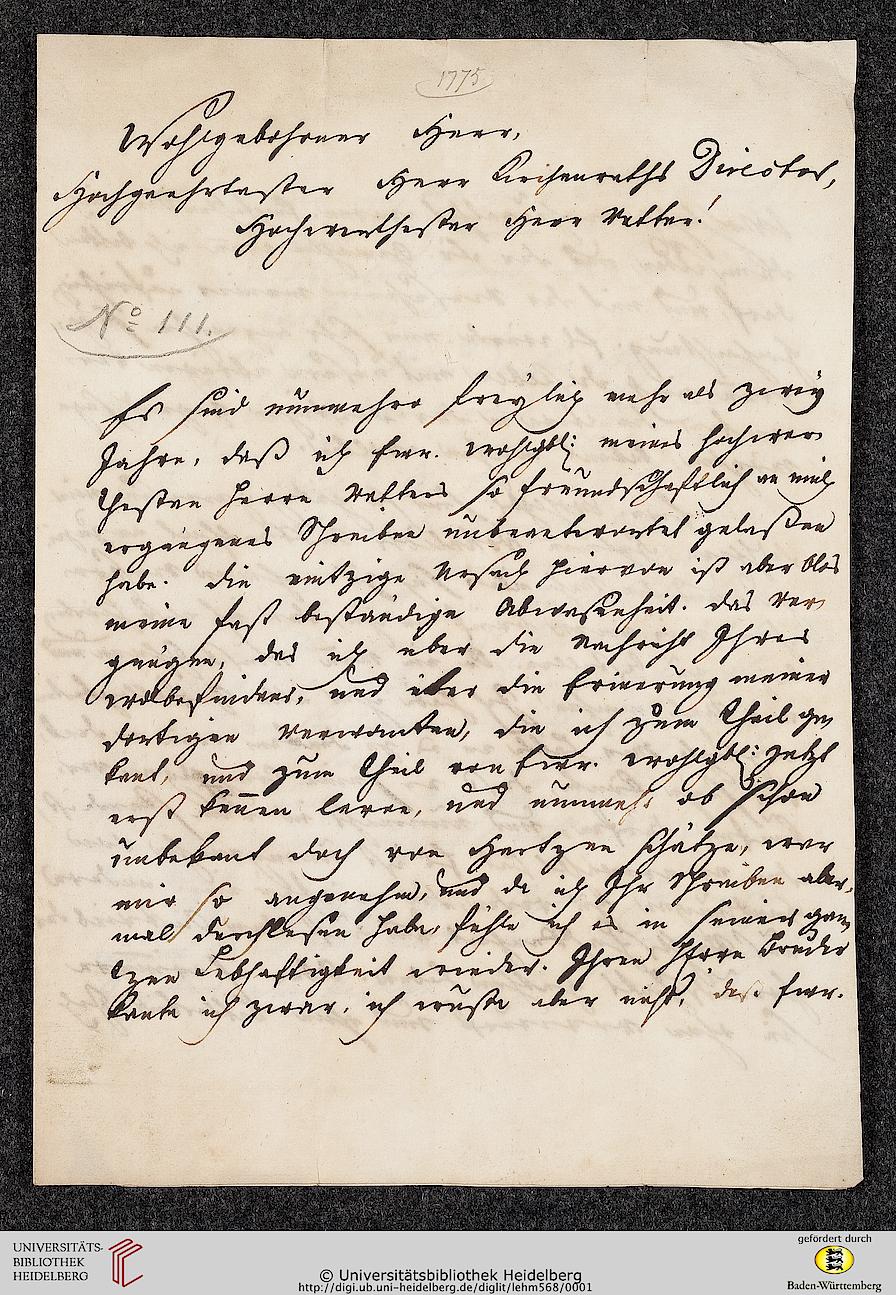 1775
Wohlgebohrner Herr,
Hochgeehrtester Herr Kirchenraths Director,
Hochwerthester Herr Vetter!
No 111.
Es sind nunmehro freylich mehr als zwey
Jahre, daß ich Ewr. Wohlgb: meines hochwer
thesten Herrn Vetters so freundschaftlich an mich
ergangenes Schreiben unbeantwortet gelaßen
habe. die eintzige Ursach hiervon ist aber blos
meine fast beständige Abwesenheit. das Ver
gnügen, das ich über die Nachricht Ihres
Wolbefindens, und über die Erinerung meiner
dortigen Verwanten, die ich zum Theil ge
kant, und zum Theil von Ewr. Wohlgb: jetzt
erst kennen lerne, und nunmehr ob schon
unbekant doch von Hertzen schätze, war
mir so angenehm, und da ich Ihr Schreiben aber,
mal durchlesen habe, fühle ich es in seiner gan
tzen Lebhaftigkeit wieder. Ihren Herrn Bruder
kante ich zwar, ich wuste aber nicht, daß Ewr.
UNIVERSITÄTS-
BIBLIOTHEK
HEIDELBERG
© Universitätsbibliothek Heidelberg
http://digi.ub.uni-heidelberg.de/diglit/lehm568/0001
gefördert durch
Baden-Württemberg